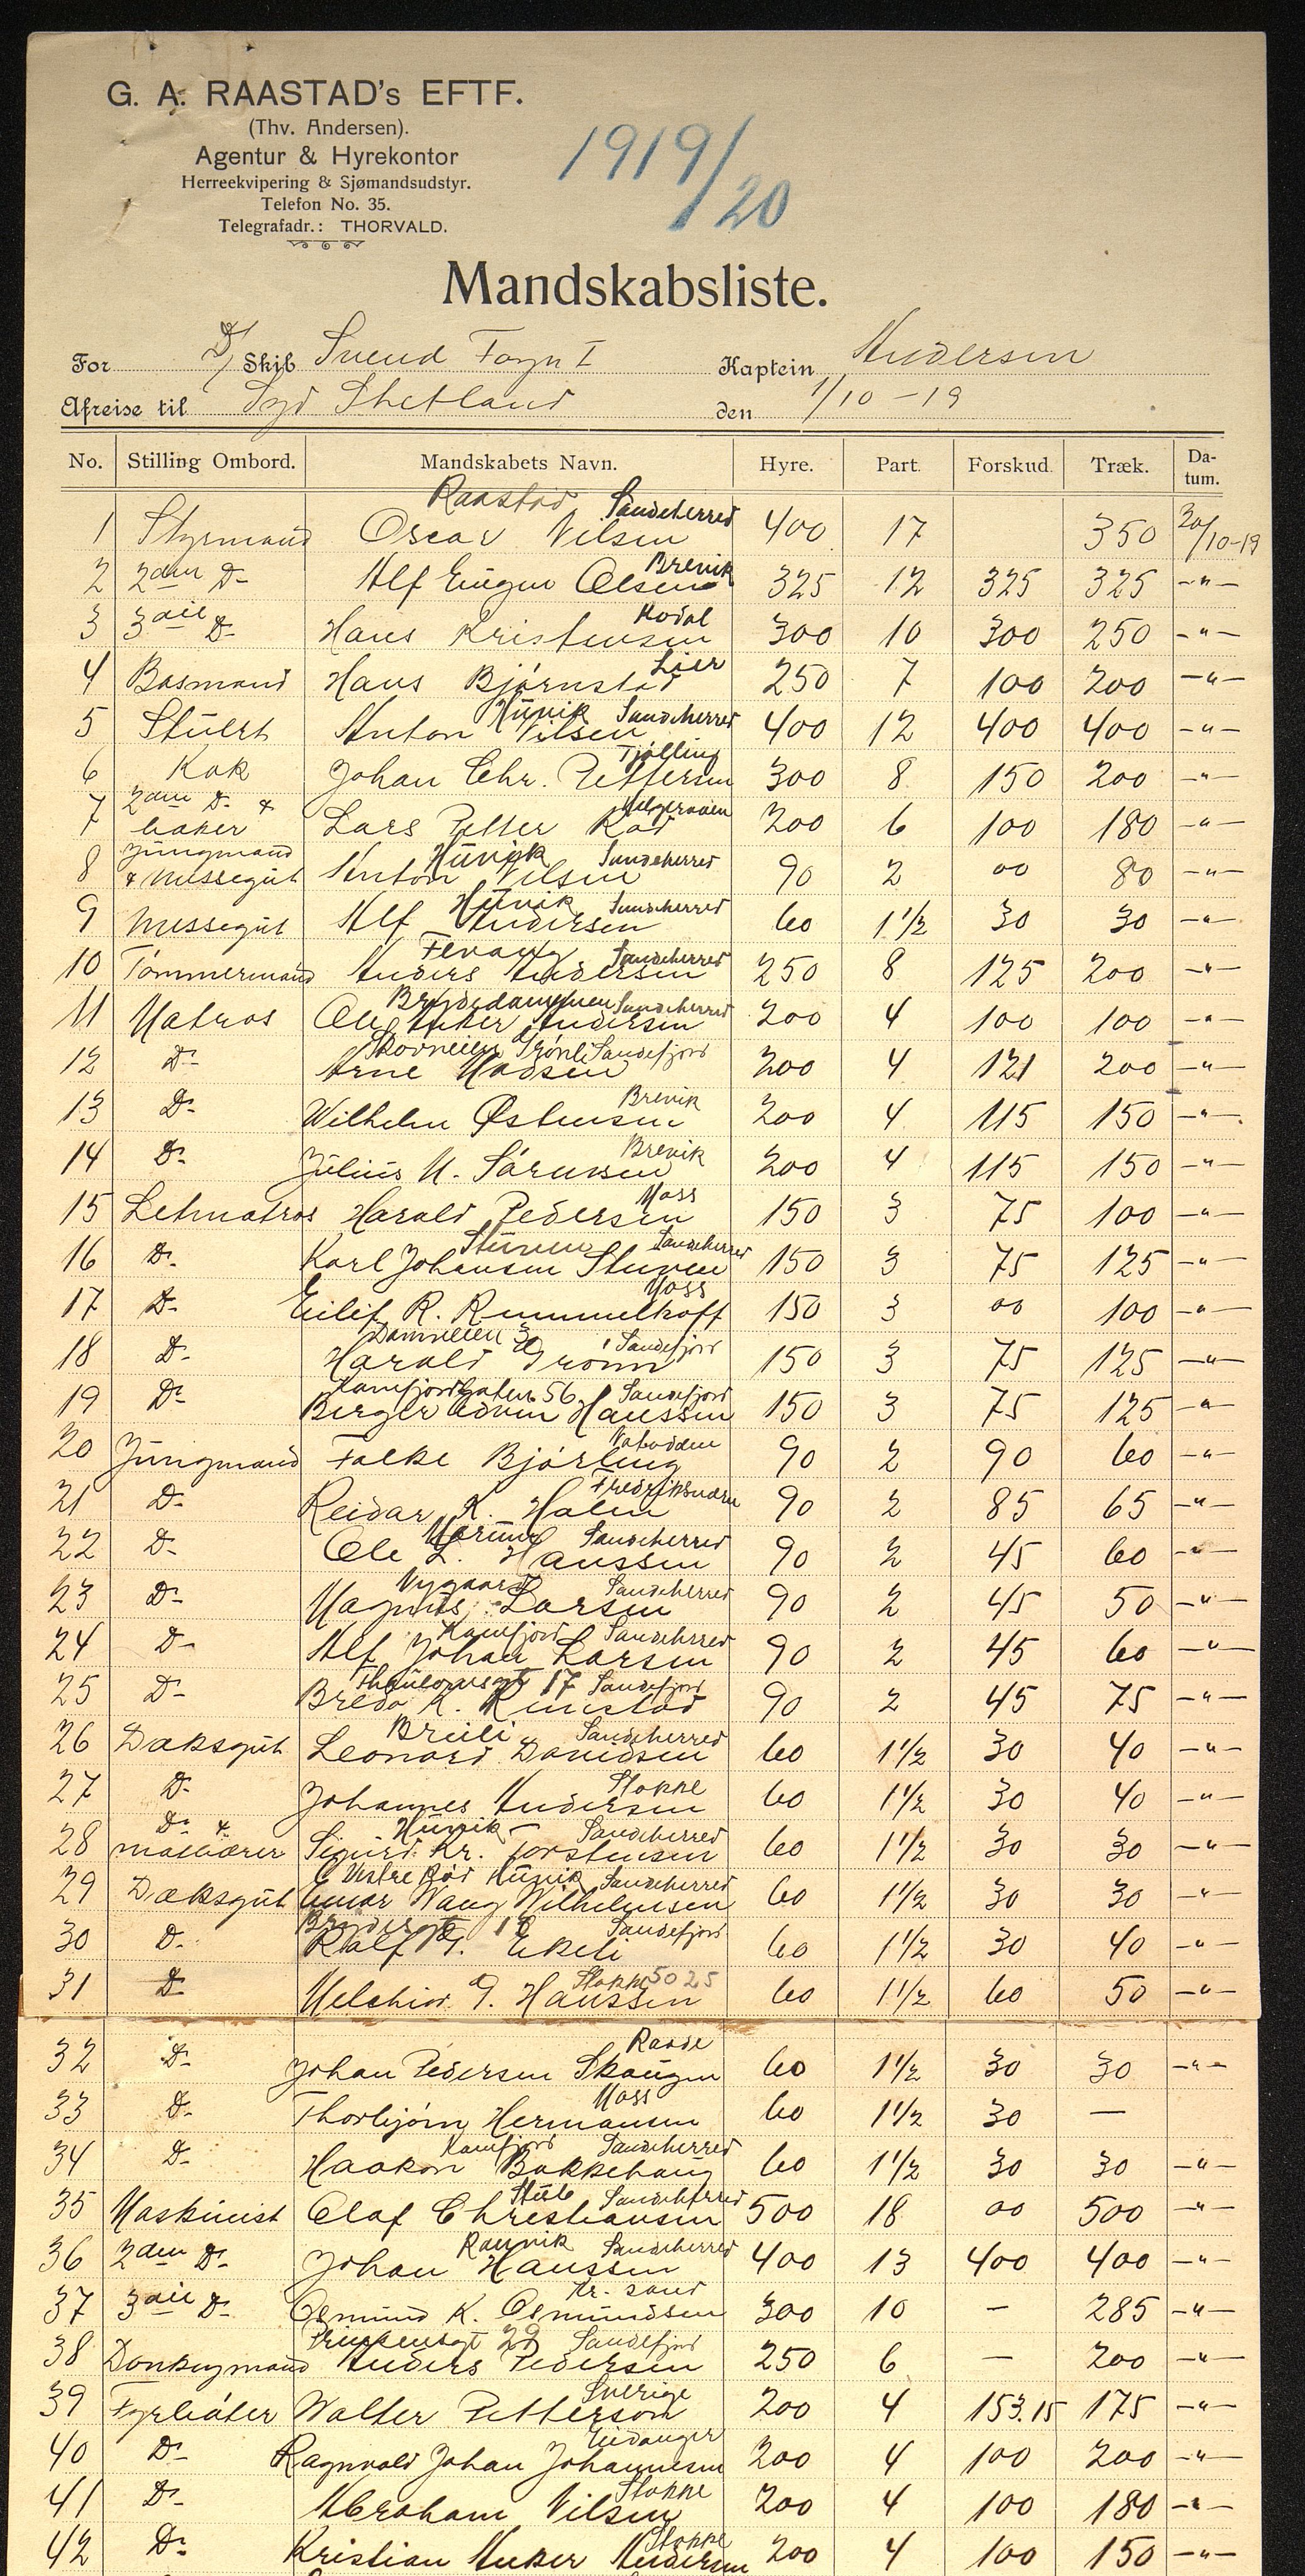 G. A. RAASTAD's EFTF.
(Thv. Andersen).
Agentur & Hyrekontor
Herreekvipering & Sjømandsudstyr.
Telefon No. 35.
Telegrafadr.: THORVALD.
1919/20
Mandskabsliste.
For D/ Skib Svend Foyn I Kaptein Andersen
Afreise til Syd Shetland den 1/10-19
No. Stilling Ombord. Mandskabets Navn. Hyre. Part. Forskud. Træk. Datum.
Raastad Sandeherred
1 Styrmand Oscar Nilsen 400 17 350 20/10-19
Brevik
2 2den Do Alf Eugen Olsen 325 12 325 325 -"-
Kodal
3 3die Do Hans Kristensen 300 10 300 250 -"-
Lier
4 Basmand Hans Bjørnstad 250 7 100 200 -"-
Hunik Sandeherred
5 Stuert Anton Nilsen 400 12 400 400 -"-
Tjølling
6 Kok Johan Chr. Pettersen 300 8 150 200 -"-
Helgeroaen
7 2den Do & baker Lars Petter Rød 200 6 100 180 -"-
Hunik Sandeherred
8 Jungmand & messegut Anton Nilsen 90 2 00 80 -"-
Hunik Sandeherred
9 Messegut Alf Andersen 60 1 1/2 30 30 -"-
Fevang Sandeherred
10 Tømmermand Anders Andersen 250 8 125 200 -"-
Bryddedammen Sandeherred
11 Matros Ole Anker Andersen 200 4 100 100 -"-
Skovveien Grønli Sandefjord
12 Do Arne Madsen 200 4 121 200 -"-
Brevik
13 Do Wilhelm Østensen 200 4 115 150 -"-
Brevik
14 Do Julius M. Sørensen 200 4 115 150 -"-
Moss
15 Letmatros Harald Pedersen 150 3 75 100 -"-
Stuven Sandeherred
16 Do Karl Johansen Stuven 150 3 75 125 -"-
Moss
17 Do Eilif R. Rummelhoff 150 3 00 100 -"-
Damveien 3 Sandefjord
18 Do Harald Grønn 150 3 75 125 -"-
Kamfjordgaten 56 Sandefjord
19 Do Birger Edvin Hanssen 150 3 75 125 -"-
Notodden
20 Jungmand Folke Bjørling 90 2 90 60 -"-
Fredriksværn
21 Do Reidar K. Holm 90 2 85 65 -"-
Marum Sandeherred
22 Do Ole L. Hanssen 90 2 45 60 -"-
Nygaard Sandeherred
23 Do Magnus Larsen 90 2 45 50 -"-
Kamfjord Sandeherred
24 Do Alf Johan Larsen 90 2 45 60 -"-
Thaulowsgt 17 Sandefjord
25 Do Bredo K. Rimstad 90 2 45 75 -"-
Breili Sandeherred
26 Dæksgut Leonard Davidsen 60 1 1/2 30 40 -"-
Stokke
27 Do Johannes Andersen 60 1 1/2 30 40 -"-
Hunik Sandeherred
28 Do & matbærer Sigurd Kr. Torstensen 60 1 1/2 30 30 -"-
Vestre Rød Hunik Sandeherred
29 Dæksgut Einar Waug Wilhelmsen 60 1 1/2 30 30 -"-
Sandefjord
30 Do Rolf T. Ekeli 60 1 1/2 30 40 -"-
Stokke 5025
31 Do Melchior G. Hanssen 60 1 1/2 60 50 -"-
Raade
32 Do Johan Pedersen Skaugen 60 1 1/2 30 30 -"-
Moss
33 Do Thorbjørn Hermansen 60 1 1/2 30 —
Kamfjord Sandeherred
34 Do Haakon Bakkehaug 60 1 1/2 30 30 -"-
Stub Sandeherred
35 Maskinist Olaf Christiansen 500 18 00 500 -"-
Ranvik Sandeherred
36 2den Do Johan Hanssen 400 13 400 400 -"-
Kr. sand
37 3die Do Osmund K. Osmundsen 300 10 — 285 -"-
Prinsensgt 29 Sandefjord
38 Donkeymand Anders Pedersen 250 6 — 200 -"-
Sverige
39 Fyrbøter Walter Petterson 200 4 153.15 175 -"-
Eidanger
40 Do Ragnvald Johan Johannesen 200 4 100 200 -"-
Stokke
41 Do Abraham Nilsen 200 4 100 180 -"-
Stokke
42 Do Kristian Anker Andersen 200 4 100 150 -"-